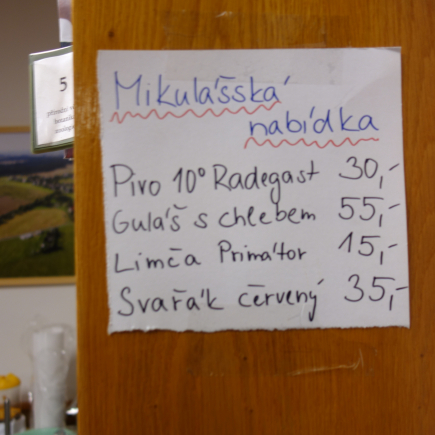 Mikulášská
nabídka
Pivo 10° Radegast 30,-
Guláš s chlebem 55,-
Limča Primátor 15,-
Svařák červený 35,-
5